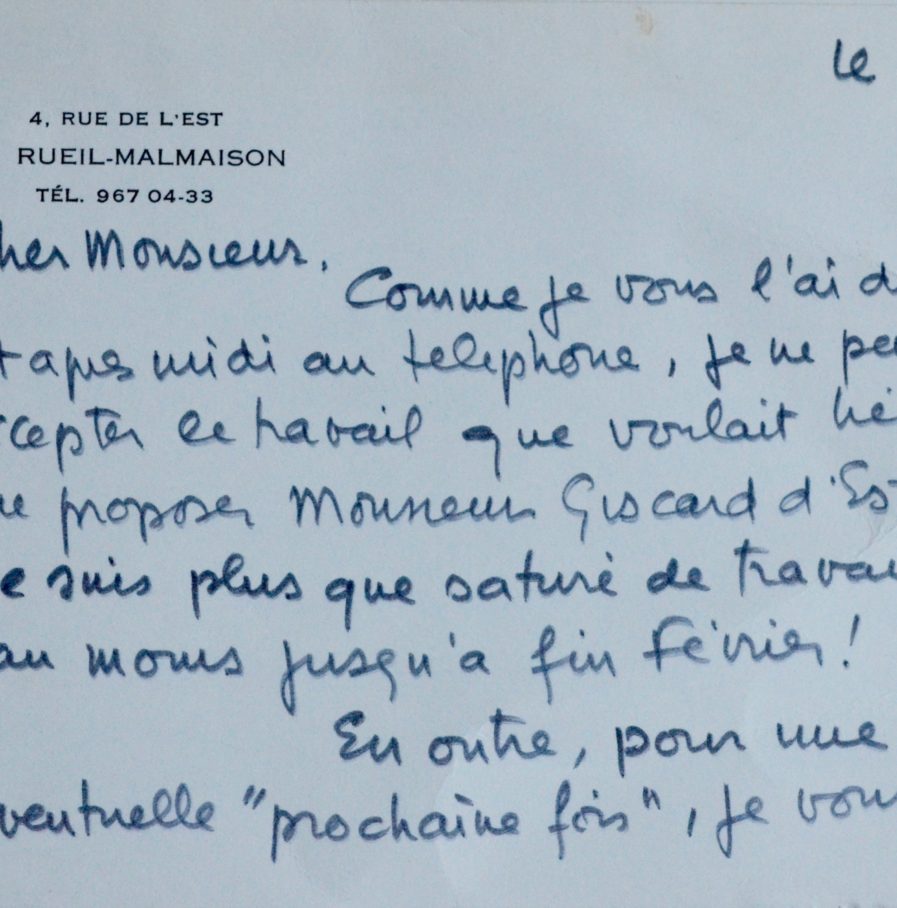 le
4, RUE DE L'EST
RUEIL-MALMAISON
TÉL. 967 04-33
her Monsieur.
Comme je vous l'ai d
t apres midi au telephone, je ne pe
cepter le travail que voulait
proposer Monsieur Giscard d'Es
e suis plus que saturé de trava
au moins jusqu'a fin février!
En outre, pour une
ventuelle "prochaine fois", je vous